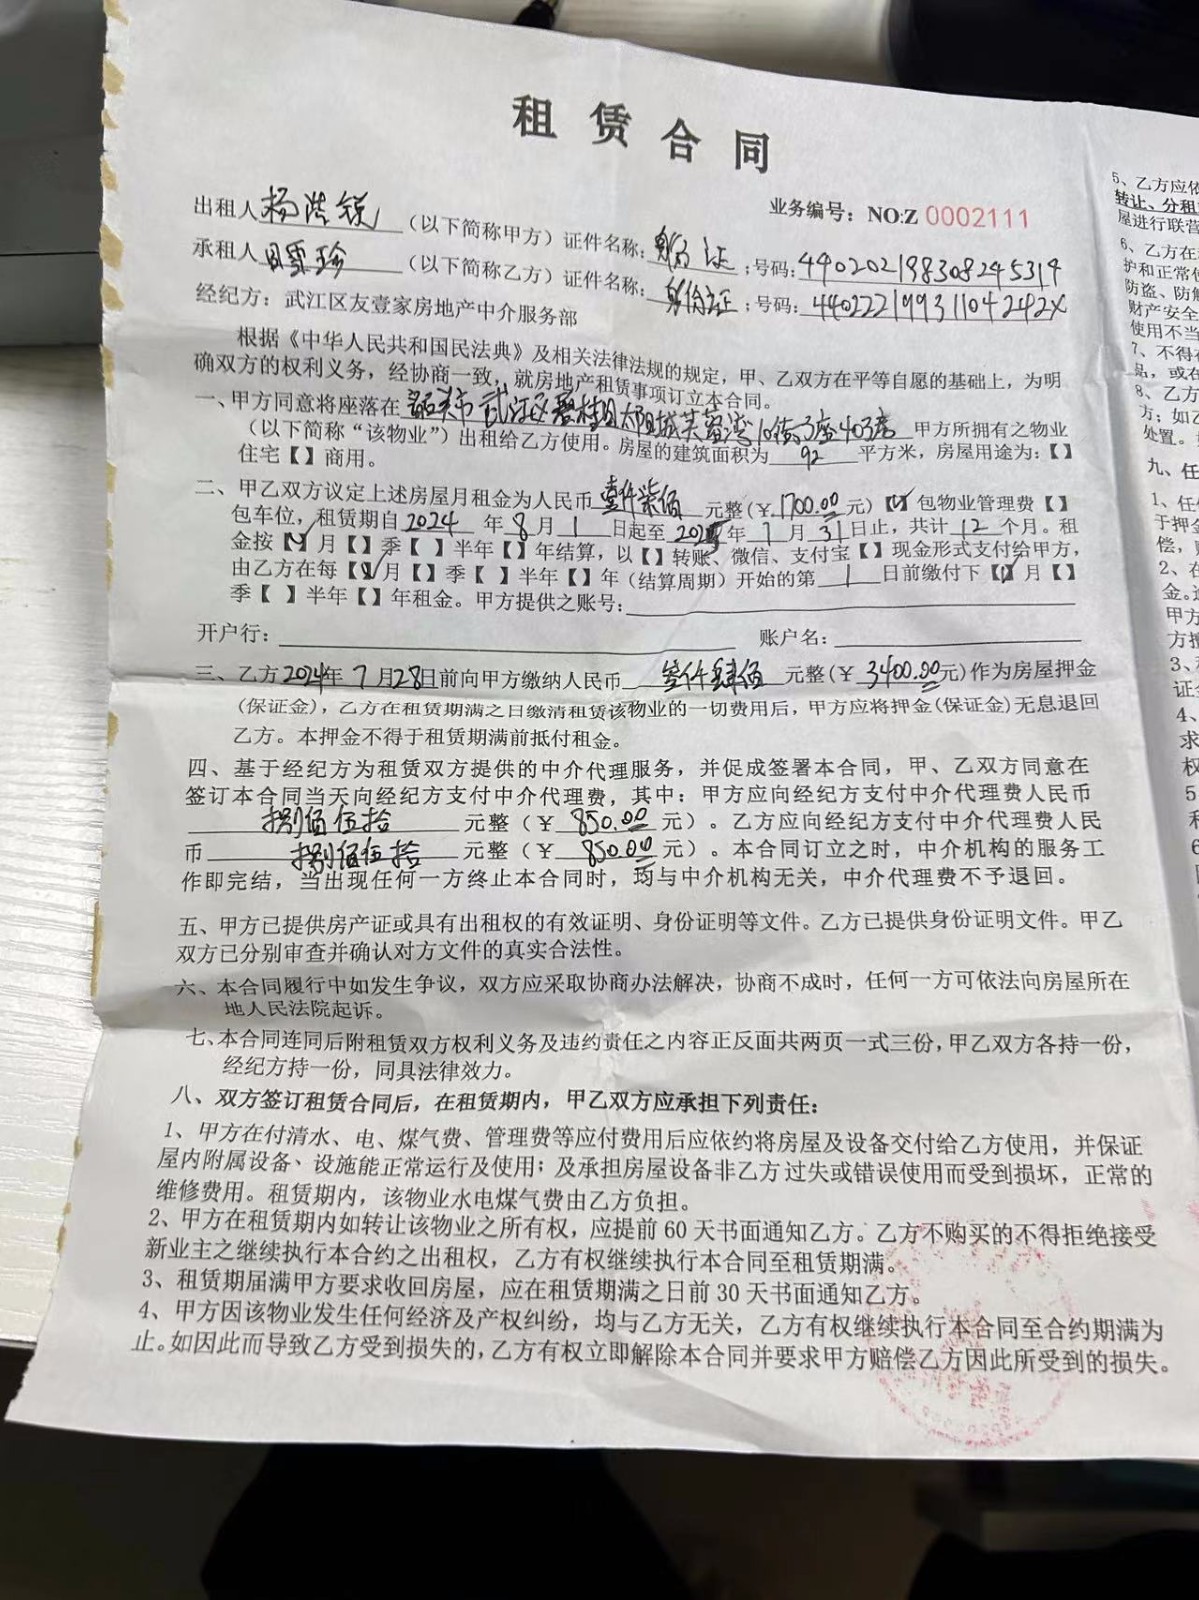 租赁合同
业务编号：NO:Z 0002111
出租人杨浩锐（以下简称甲方）证件名称：身份证；号码：440202198308245314
承租人 雪珍（以下简称乙方）证件名称：身份证；号码：44022219931104242X
经纪方：武江区友壹家房地产中介服务部
根据《中华人民共和国民法典》及相关法律法规的规定，甲、乙双方在平等自愿的基础上，为明
确双方的权利义务，经协商一致，就房地产租赁事项订立本合同。
一、甲方同意将座落在韶关市武江区碧桂园太阳城芙蓉湾10街3座403房 甲方所拥有之物业
（以下简称“该物业”）出租给乙方使用。房屋的建筑面积为 92 平方米，房屋用途为：【】
住宅【】商用。
二、甲乙双方议定上述房屋月租金为人民币 壹仟柒佰 元整（￥1700.00元）【✓】包物业管理费【】
包车位，租赁期自2024年8月1日起至2025年7月31日止，共计12个月。租
金按【✓】月【】季【】半年【】年结算，以【】转账、微信、支付宝【】现金形式支付给甲方，
由乙方在每【✓】月【】季【】半年【】年（结算周期）开始的第 1 日前缴付下【✓】月【】
季【】半年【】年租金。甲方提供之账号：
开户行： 账户名：
三、乙方2024年7月28日前向甲方缴纳人民币 叁仟肆佰 元整（￥3400.00元）作为房屋押金
（保证金），乙方在租赁期满之日缴清租赁该物业的一切费用后，甲方应将押金（保证金）无息退回
乙方。本押金不得于租赁期满前抵付租金。
四、基于经纪方为租赁双方提供的中介代理服务，并促成签署本合同，甲、乙双方同意在
签订本合同当天向经纪方支付中介代理费，其中：甲方应向经纪方支付中介代理费人民币
捌佰伍拾 元整（￥ 850.00 元）。乙方应向经纪方支付中介代理费人民
币 捌佰伍拾 元整（￥ 850.00 元）。本合同订立之时，中介机构的服务工
作即完结，当出现任何一方终止本合同时，均与中介机构无关，中介代理费不予退回。
五、甲方已提供房产证或具有出租权的有效证明、身份证明等文件。乙方已提供身份证明文件。甲乙
双方已分别审查并确认对方文件的真实合法性。
六、本合同履行中如发生争议，双方应采取协商办法解决，协商不成时，任何一方可依法向房屋所在
地人民法院起诉。
七、本合同连同后附租赁双方权利义务及违约责任之内容正反面共两页一式三份，甲乙双方各持一份，
经纪方持一份，同具法律效力。
八、双方签订租赁合同后，在租赁期内，甲乙双方应承担下列责任：
1、甲方在付清水、电、煤气费、管理费等应付费用后应依约将房屋及设备交付给乙方使用，并保证
屋内附属设备、设施能正常运行及使用；及承担房屋设备非乙方过失或错误使用而受到损坏，正常的
维修费用。租赁期内，该物业水电煤气费由乙方负担。
2、甲方在租赁期内如转让该物业之所有权，应提前60天书面通知乙方。乙方不购买的不得拒绝接受
新业主之继续执行本合约之出租权，乙方有权继续执行本合同至租赁期满。
3、租赁期届满甲方要求收回房屋，应在租赁期满之日前30天书面通知乙方。
4、甲方因该物业发生任何经济及产权纠纷，均与乙方无关，乙方有权继续执行本合同至合约期满为
止。如因此而导致乙方受到损失的，乙方有权立即解除本合同并要求甲方赔偿乙方因此所受到的损失。
5、乙方应依
转让、分租
屋进行联营
6、乙方在
护和正常使
防盗、防
财产安全
使用不当
7、不得在
，或在
8、乙方
方；如乙
处置。
九、任
1、任
于押金
偿，
2、在
金。
甲方
方
3、
证
4、
求
权
5
6